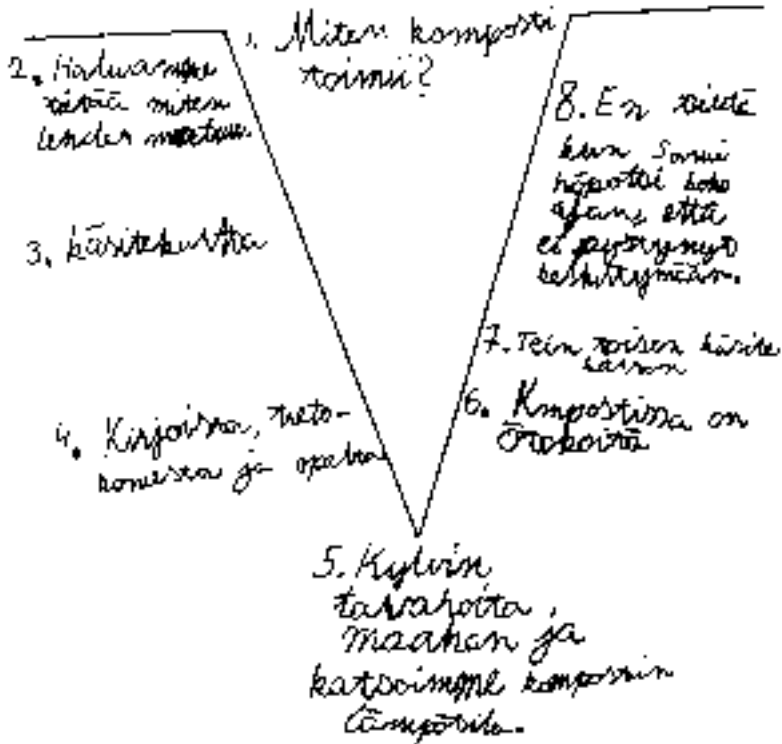 1. Miten komposti
toimii?
2. Haluamme
tietää miten
lehdet maatuu
3. käsitekartta
4. Kirjoista, tieto-
koneesta ja opelta
5. Kylvin
tavaroita
maahan ja
katsoimme kompostin
lämpötila.
6. Kmpostissa on
Ötököitä
7. Tein toisen käsite
kartan
8. En tiedä
kun
höpötti koko
ajan, että
ei pystynyt
keskittymään.